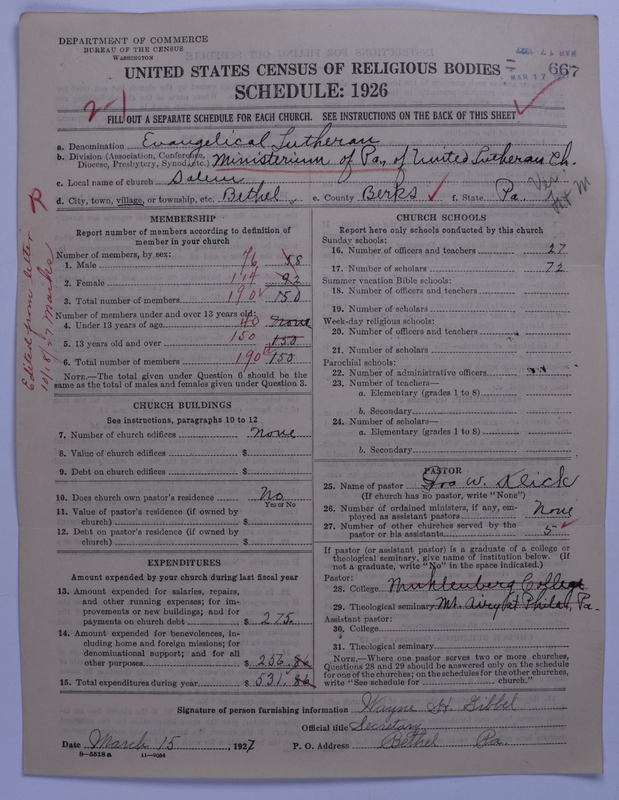 DEPARTMENT OF COMMERCE
BUREAU OF THE CENSUS
WASHINGTON
MAR 17 1927
UNITED STATES CENSUS OF RELIGIOUS BODIES
667
SCHEDULE: 1926
2-1
FILL OUT A SEPARATE SCHEDULE FOR EACH CHURCH. SEE INSTRUCTIONS ON THE BACK OF THIS SHEET
a. Denomination Evangelical Lutheran
b. Division (Association, Conference, Diocese, Presbytery, Synod, etc.) Ministerium of Pa, of United Lutheran Ch.
c. Local name of church Salem
d. City, town, village, or township, etc. Bethel e. County Berks f. State Pa.
Edited from letter
MEMBERSHIP
Report number of members according to definition of
member in your church
Number of members, by sex:
1. Male 76 58
2. Female 114 92
3. Total number of members 190 150
Number of members under and over 13 years old:
4. Under 13 years of age 40 none
5. 13 years old and over 150 150
6. Total number of members 190 150
NOTE.—The total given under Question 6 should be the
same as the total of males and females given under Question 3.
CHURCH BUILDINGS
See instructions, paragraphs 10 to 12
7. Number of church edifices none
8. Value of church edifices $
9. Debt on church edifices $
10. Does church own pastor's residence No
Yes or No
11. Value of pastor's residence (if owned by
church) $
12. Debt on pastor's residence (if owned by
church) $
EXPENDITURES
Amount expended by your church during last fiscal year
13. Amount expended for salaries, repairs,
and other running expenses; for im-
provements or new buildings; and for
payments on church debt $ 275.
14. Amount expended for benevolences, in-
cluding home and foreign missions; for
denominational support; and for all
other purposes $ 256.86
15. Total expenditures during year $ 531.86
CHURCH SCHOOLS
Report here only schools conducted by this church
Sunday schools:
16. Number of officers and teachers 27
17. Number of scholars 72
Summer vacation Bible schools:
18. Number of officers and teachers
19. Number of scholars
Week-day religious schools:
20. Number of officers and teachers
21. Number of scholars
Parochial schools:
22. Number of administrative officers
23. Number of teachers—
a. Elementary (grades 1 to 8)
b. Secondary
24. Number of scholars—
a. Elementary (grades 1 to 8)
b. Secondary
PASTOR
25. Name of pastor Ira W. Klick
(If church has no pastor, write "None")
26. Number of ordained ministers, if any, em-
ployed as assistant pastors None
27. Number of other churches served by the
pastor or his assistants 5
If pastor (or assistant pastor) is a graduate of a college or
theological seminary, give name of institution below. (If
not a graduate, write "No" in the space indicated.)
Pastor:
28. College Muhlenberg College
29. Theological seminary Mt. Airy, at Phila, Pa.
Assistant pastor:
30. College
31. Theological seminary
NOTE.—Where one pastor serves two or more churches,
Questions 28 and 29 should be answered only on the schedule
for one of the churches; on the schedules for the other churches,
write "See schedule for church."
Signature of person furnishing information Wayne H. Gibbel
Official title Secretary
Date March 15, 1927 P. O. Address Bethel Pa.
8—5518a 11—9084